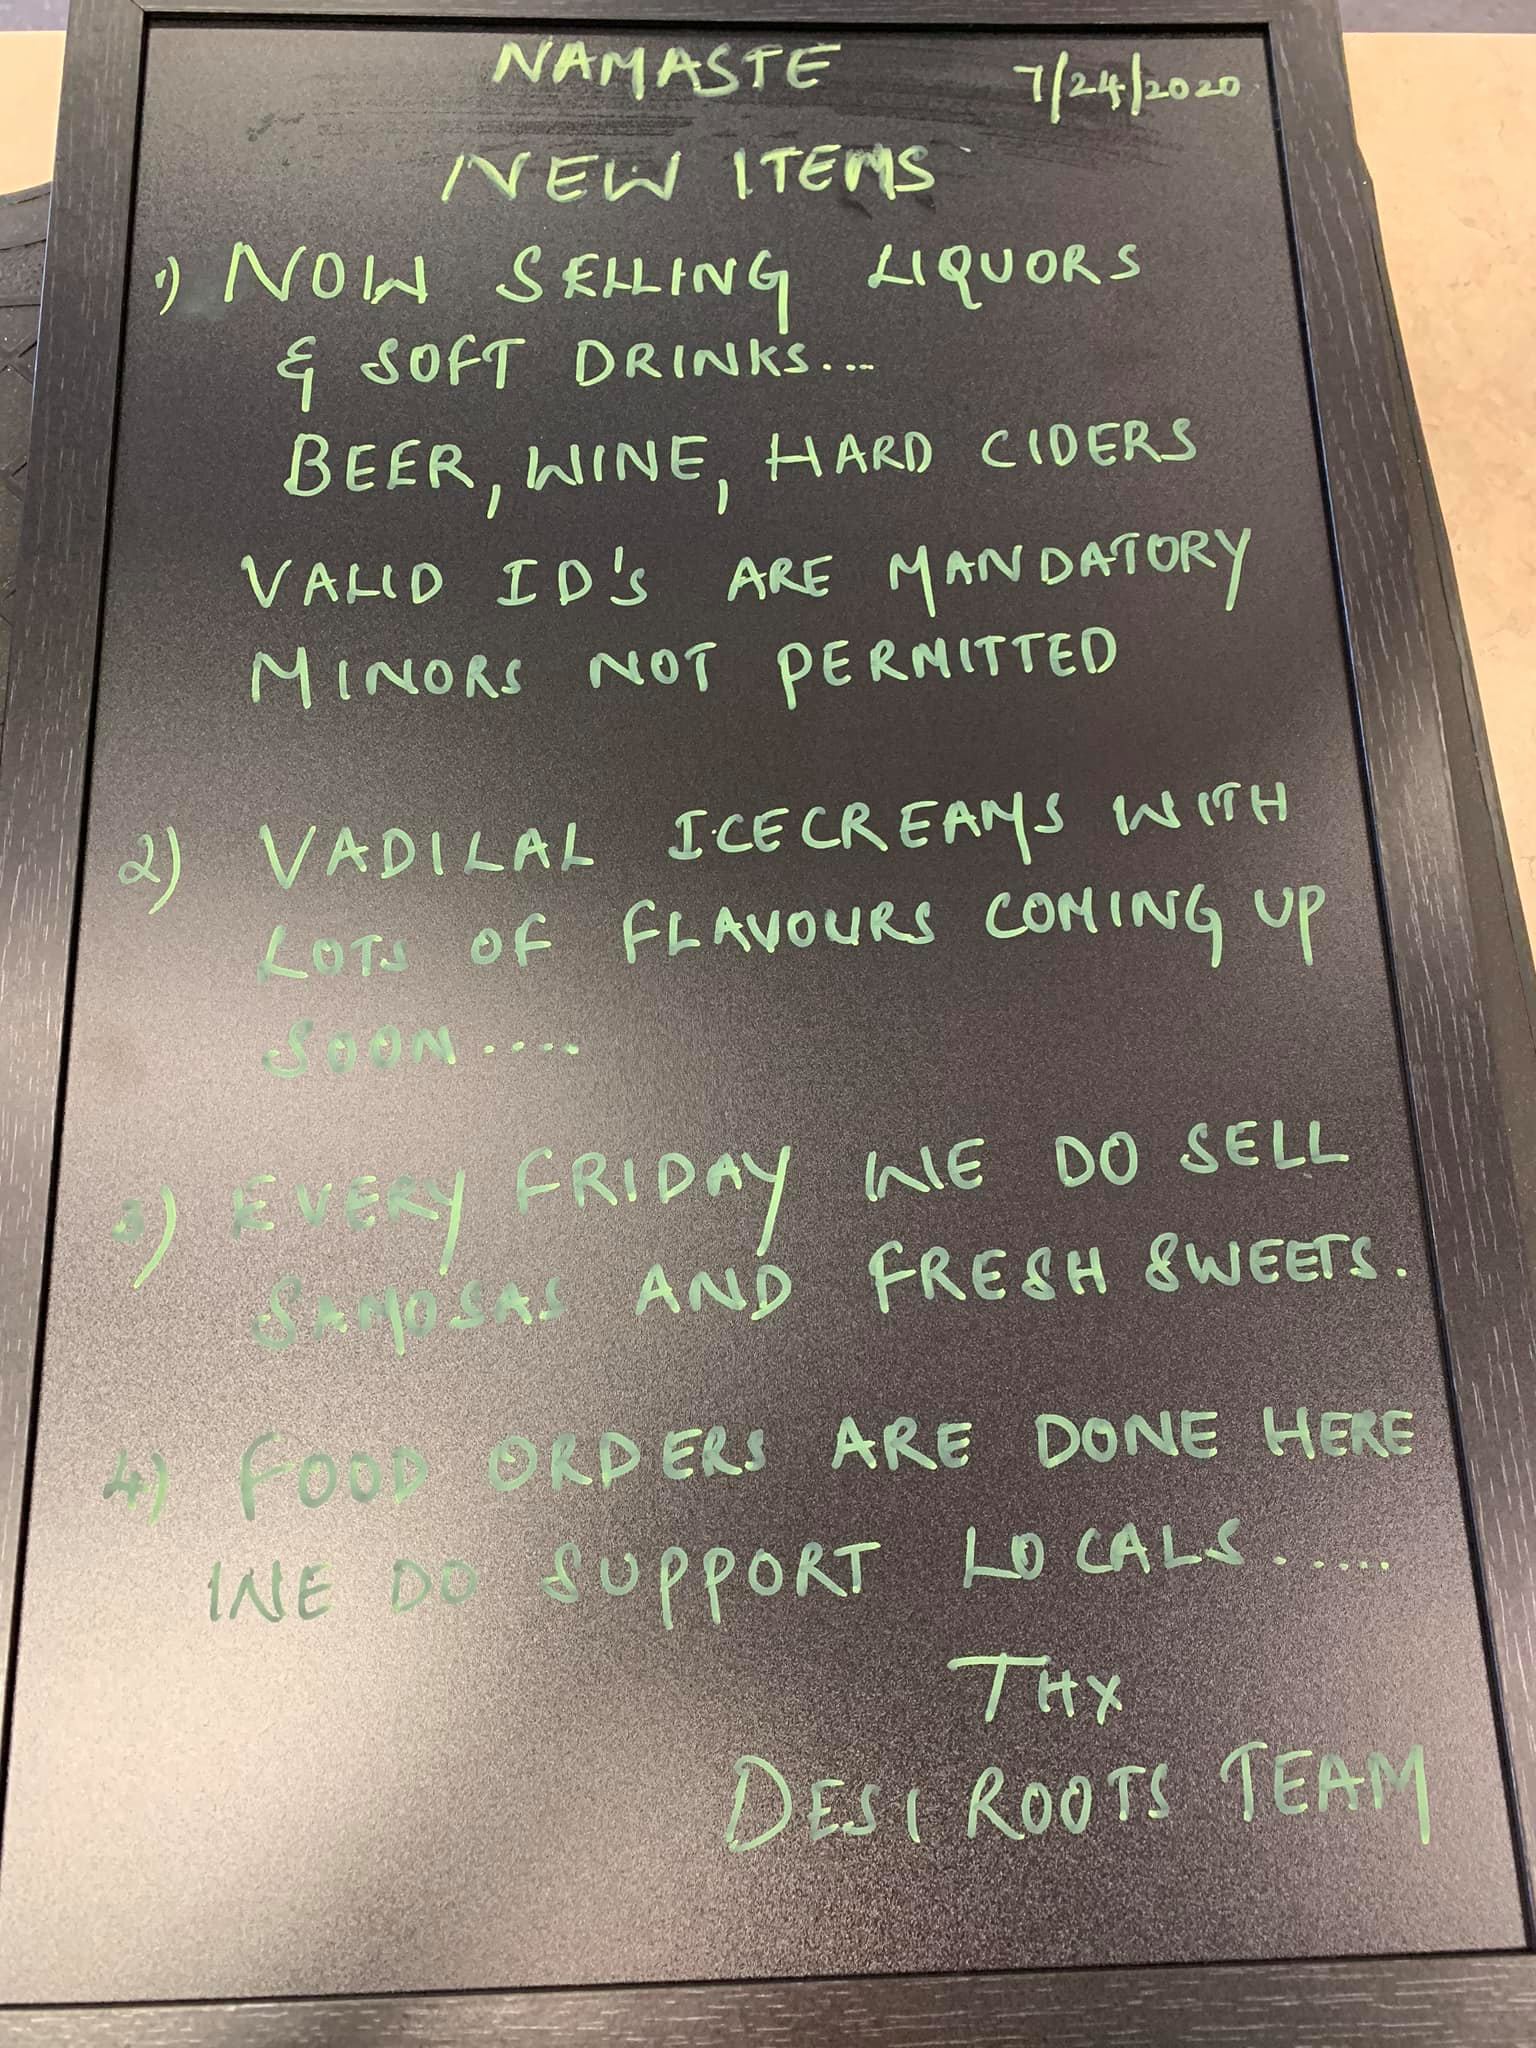 NAMASTE 7/24/2020
NEW ITEMS
1) NOW SELLING LIQUORS
& SOFT DRINKS...
BEER, WINE, HARD CIDERS
VALID ID'S ARE MANDATORY
MINORS NOT PERMITTED
2) VADILAL ICECREAMS WITH
LOTS OF FLAVOURS COMING UP
SOON.....
3) EVERY FRIDAY WE DO SELL
SAMOSAS AND FRESH SWEETS.
4) FOOD ORDERS ARE DONE HERE
WE DO SUPPORT LOCALS......
THX
DESI ROOTS TEAM